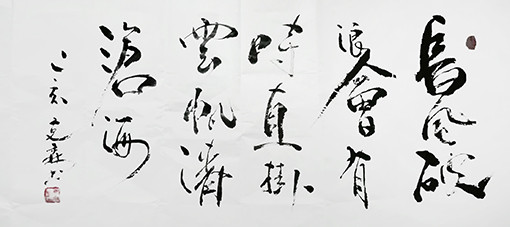 長風破
浪會有
時直掛
雲帆濟
滄海
乙亥